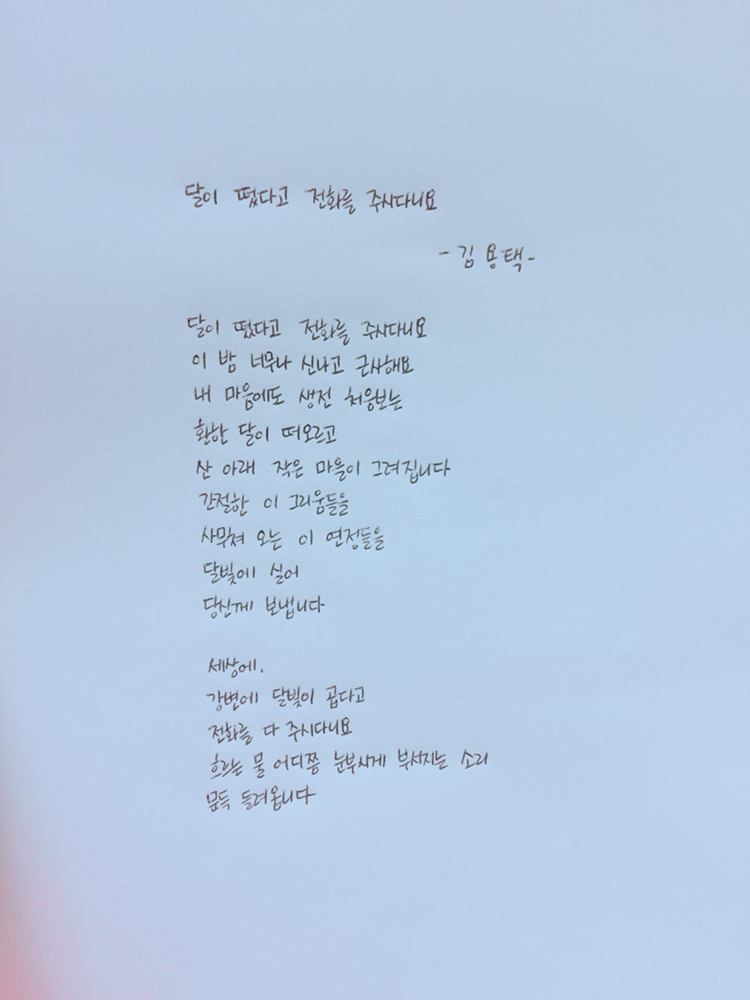 달이 떴다고 전화를 주시다니요
- 김용택 -
달이 떴다고 전화를 주시다니요
이 밤 너무나 신나고 근사해요
내 마음에도 생전 처음보는
환한 달이 떠오르고
산 아래 작은 마을이 그려집니다
간절한 이 그리움들을
사무쳐 오는 이 연정들을
달빛에 실어
당신께 보냅니다
세상에.
강변에 달빛이 곱다고
전화를 다 주시다니요
흐르는 물 어디쯤 눈부시게 부서지는 소리
문득 들려옵니다